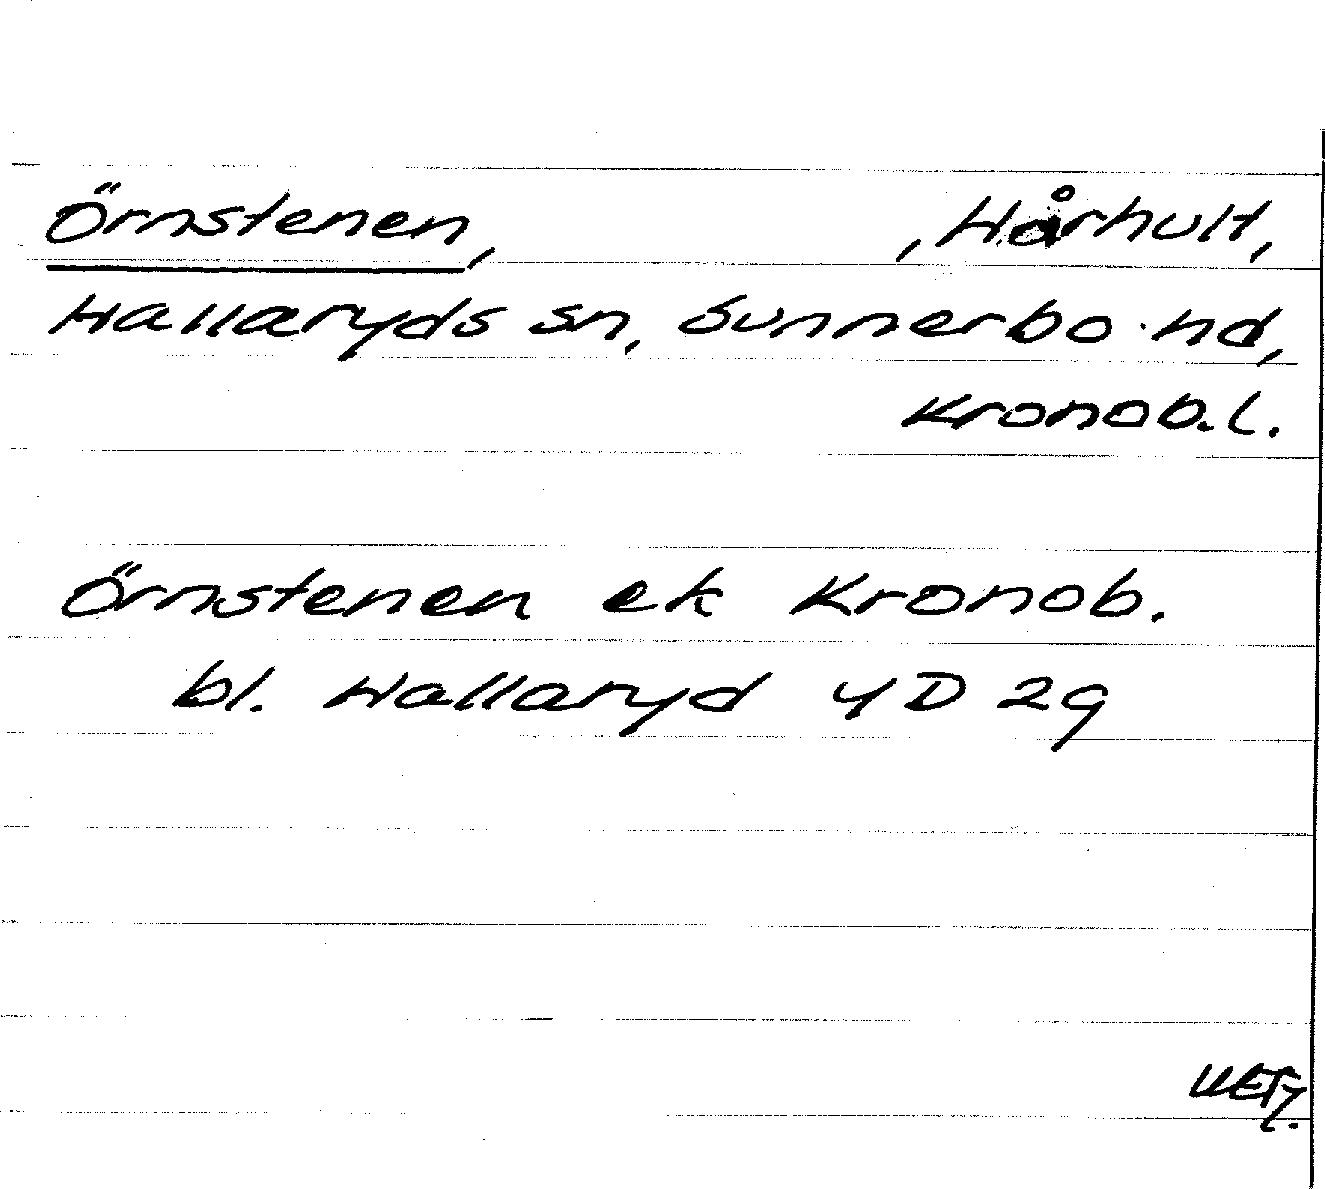 Örnstenen, , Hårhult,
Hallaryds sn, Sunnerbo hd,
Kronob. l.
Örnstenen ek Kronob.
bl. Hallaryd 4 D 2g